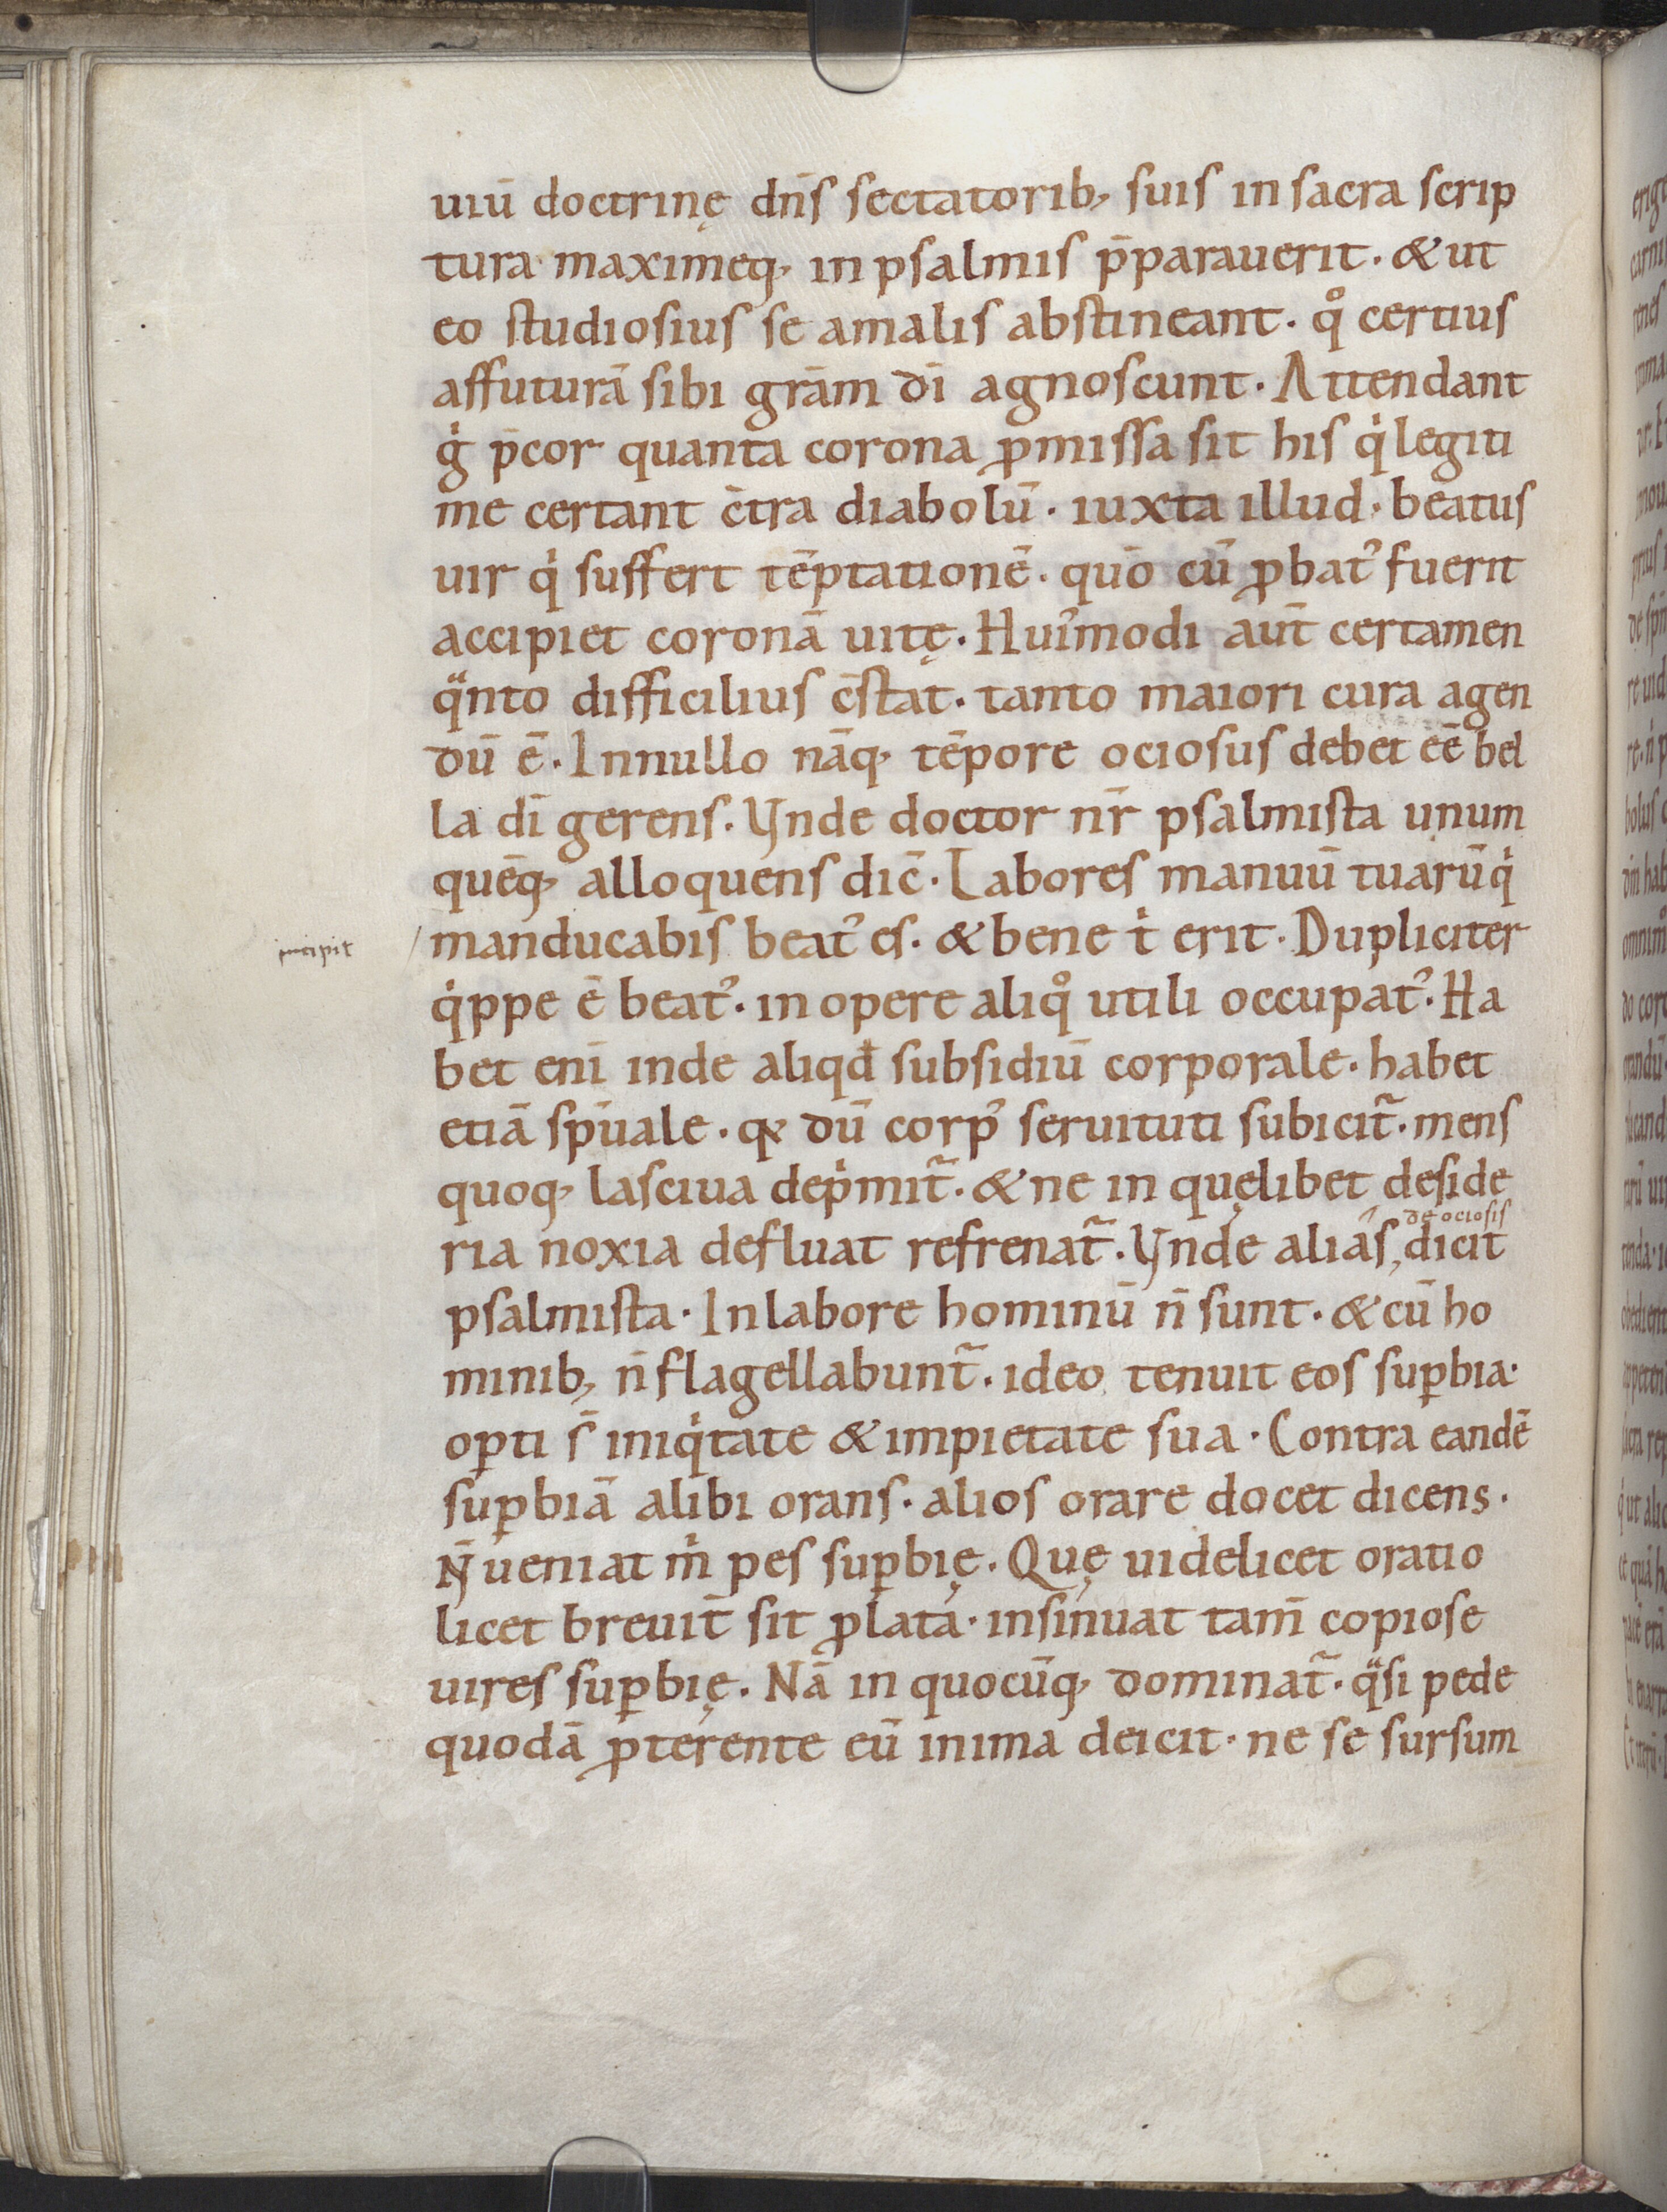 uiū doctrinę dn̄s sectatorib; suis in sacra scrip
tura maximeq; in psalmis p̄parauerit. & ut
eo studiosius se amalis abstineant. qͦ certius
affuturā sibi grām dī agnoscunt. Attendant
gͥ p̄cor quanta corona ꝓmissa sit his qͥ legiti
me certant c̄tra diabolū. iuxta illud. beatus
uir qͥ suffert tēptationē. quō cū ꝓbatꝰ fuerit
accipiet coronā uitę. Huiꝰmodi aut̄ certamen
qᵃnto difficilius c̄stat. tanto maiori cura agen
dū ē. Innullo nāq; tēpore ociosus debet eē bel
la dī gerens. Vnde doctor nr̄ psalmista unum
quēq; alloquens dic̄. Labores manuū tuarū qͥ
manducabis beatꝰ es. & bene tͥ erit. Dupliciter
qͥppe ē beatꝰ. in opere aliqͦ utili occupatꝰ. Ha
bet enī inde aliqd̄ subsidiū corporale. habet
etiā sp̄uale. qꝛ dū corpꝰ seruituti subicit᷑. mens
quoq; lasciua dep̍mit᷑. & ne in quęlibet deside
ria noxia defluat refrenat᷑. Vnde alias, dicit
de ociosis
psalmista. In labore hominū n̄ sunt. & cū ho
minib; n̄ flagellabunt᷑. ideo tenuit eos suꝑbia.
oꝑti s̄ iniqͥtate & impietate sua. Contra eandē
suꝑbiā alibi orans. alios orare docet dicens.
N̄ ueniat mͥ pes suꝑbię. Quę uidelicet oratio
licet breuit̄ sit ꝓlata. insinuat tam̄ copiose
uires suꝑbię. Nā in quocūq; dominat᷑. qᵃsi pede
quodā ꝓterente eū inima deicit. ne se sursum
incipit